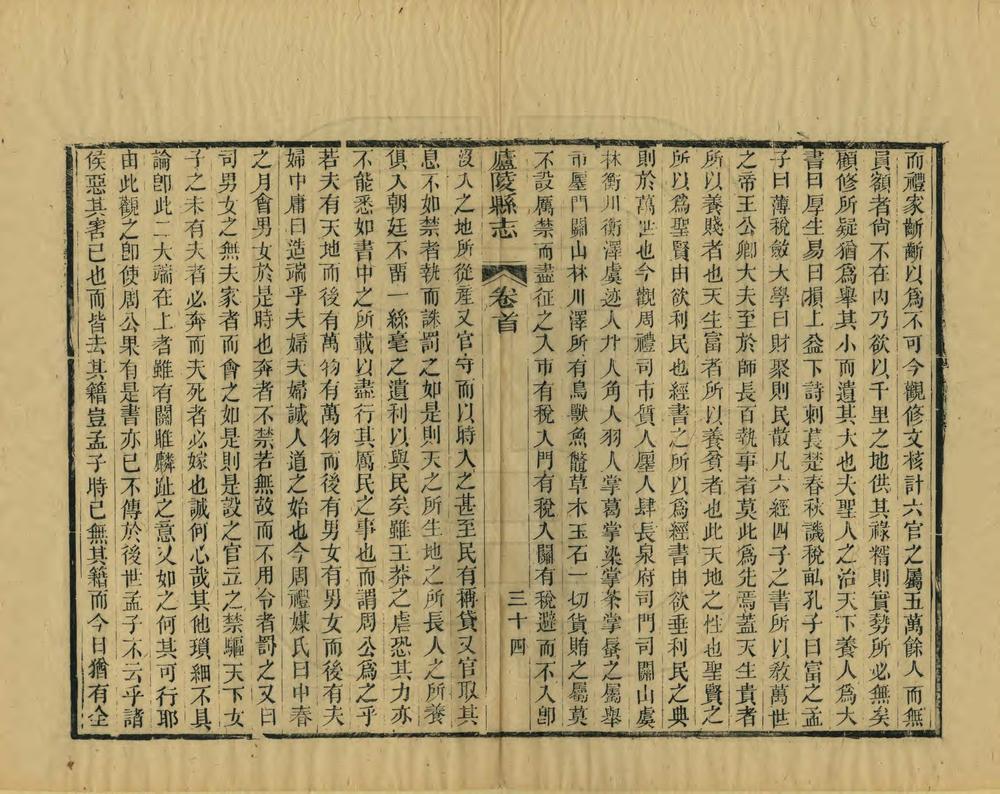 而禮家斷斷以爲不可今觀修文核計六官之屬五萬餘人而無
員額者尙不在內乃欲以千里之地供其祿糈則實勢所必無矣
顧修所疑猶爲舉其小而遺其大也夫聖人之治天下養人爲大
書曰厚生易曰損上益下詩刺萇楚春秋譏稅畝孔子曰富之孟
子曰薄稅斂大學曰財聚則民散凡六經四子之書所以敎萬世
之帝王公卿大夫至於師長百執事者莫此爲先焉蓋天生貴者
所以養賤者也天生富者所以養貧者也此天地之性也聖賢之
所以爲聖賢由欲利民也經書之所以爲經書由欲垂利民之典
則於萬世也今觀周禮司市質人廛人肆長泉府司門司關山虞
林衡川衡澤虞迹人丱人角人羽人掌葛掌染掌荼掌蜃之屬舉
市廛門關山林川澤所有鳥獸魚鼈草木玉石一切貨賄之屬莫
不設厲禁而盡征之入市有稅入門有稅入關有稅避而不入卽
廬陵縣志
卷首
三十四
沒入之地所從產又官守而以時入之甚至民有稱貸又官取其
息不如禁者執而誅罰之如是則天之所生地之所長人之所養
俱入朝廷不畱一絲毫之遺利以與民矣雖王莽之虐恐其力亦
不能悉如書中之所載以盡行其厲民之事也而謂周公爲之乎
若夫有天地而後有萬物有萬物而後有男女有男女而後有夫
婦中庸曰造端乎夫婦夫婦誠人道之始也今周禮媒氏曰中春
之月會男女於是時也奔者不禁若無故而不用令者罰之又曰
司男女之無夫家者而會之如是則是設之官立之禁驅天下女
子之未有夫者必奔而夫死者必嫁也誠何心哉其他瑣細不具
論卽此二大端在上者雖有關雎麟趾之意又如之何其可行耶
由此觀之卽使周公果有是書亦已不傳於後世孟子不云乎諸
侯惡其害己也而皆去其籍豈孟子時已無其籍而今日猶有全